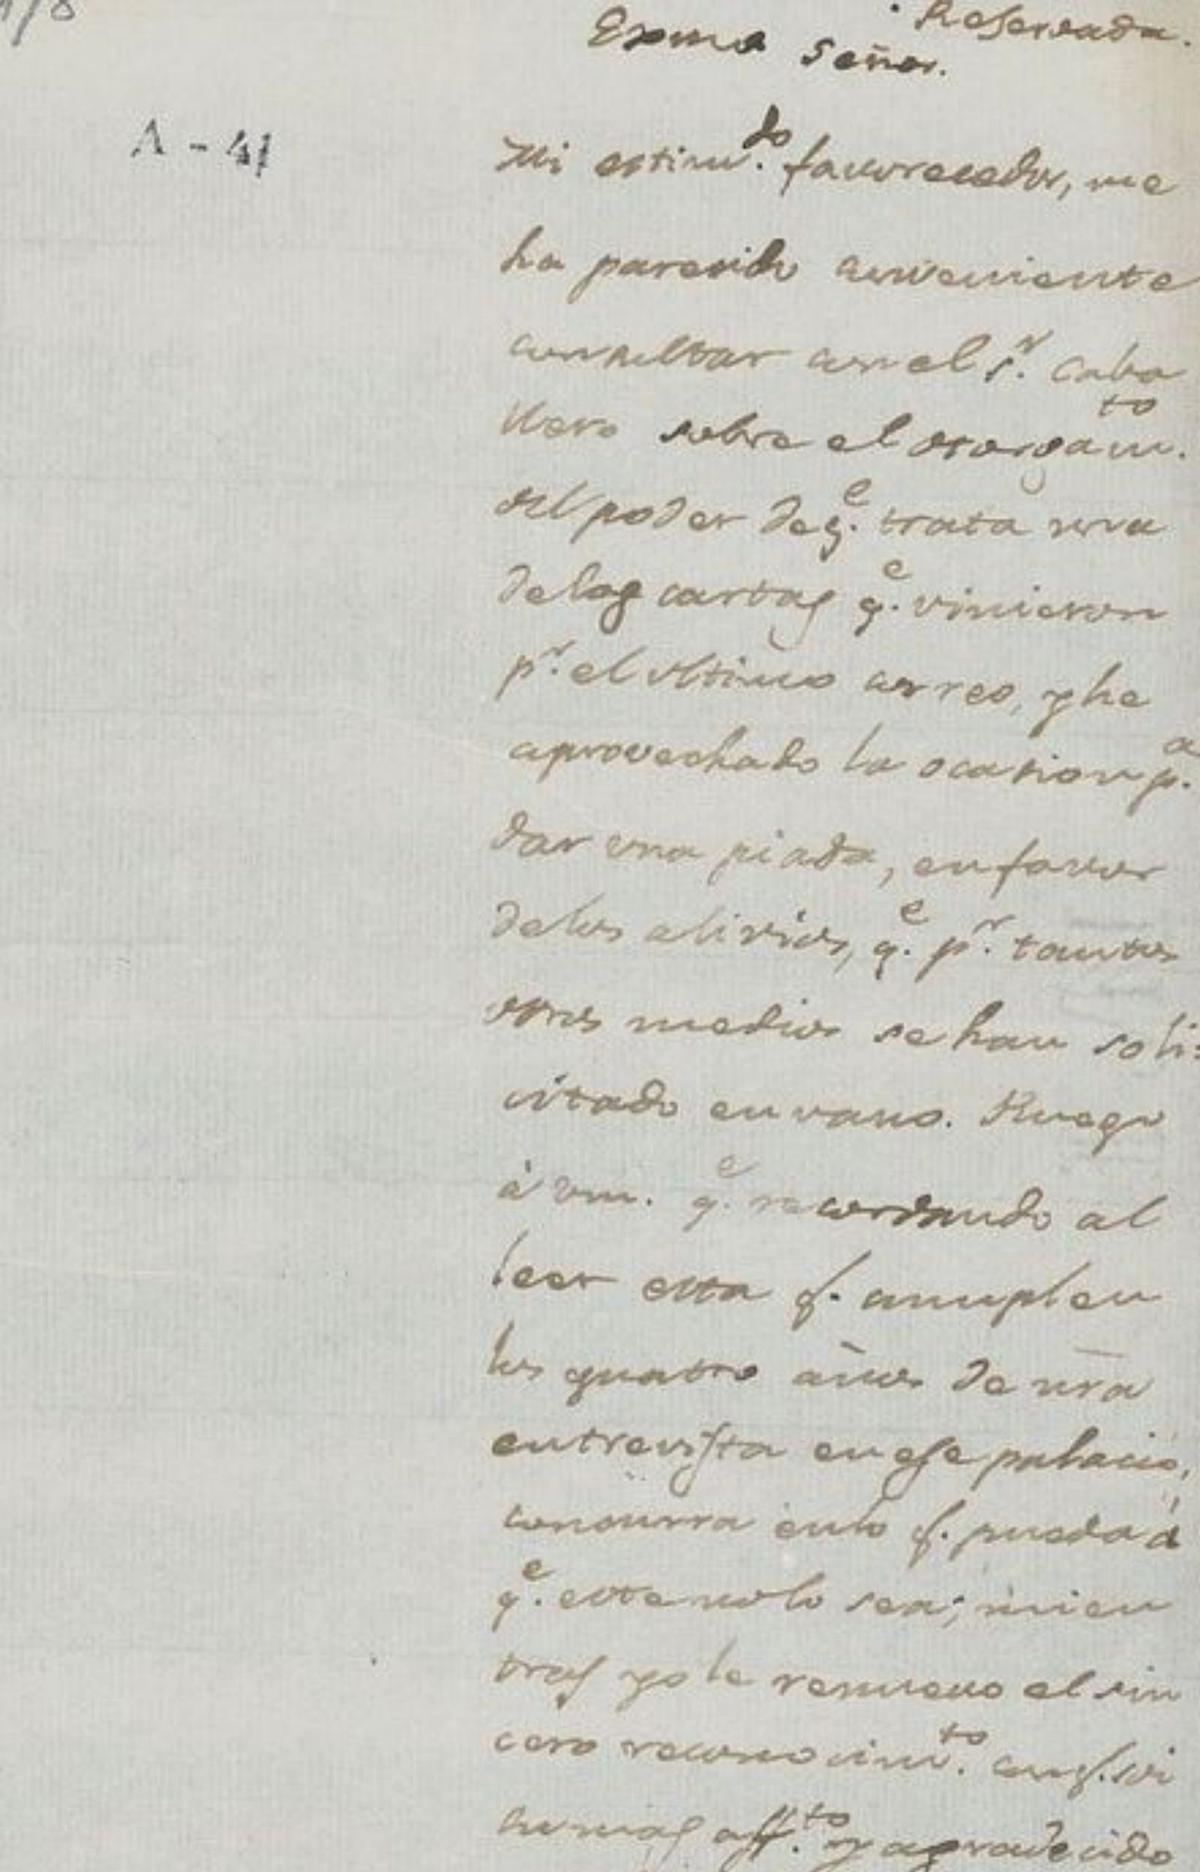 178
Reservada.
Exmo Señor.
A - 41
Mi estim.do favorecedor, me
ha parecido conveniente
consultar con el s.r Caba
llero sobre el otorgam.to
del poder de q.e trata una
de las cartas q.e vinieron
p.r el ultimo correo, y he
aprovechado la ocasion p.a
dar una piada, en favor
de los alivios, q.e p.r tantos
otros medios se han soli=
citado en vano. Ruego
à vm. q.e recordando al
leer esta q. cumplen
los quatro años de nra
entrevista en ese palacio,
concurra en lo q. pueda á
q.e este no lo sea; mien
tras yo le renuevo el sin
cero reconocim.to con q. soi
su mas aff.to y agradecido